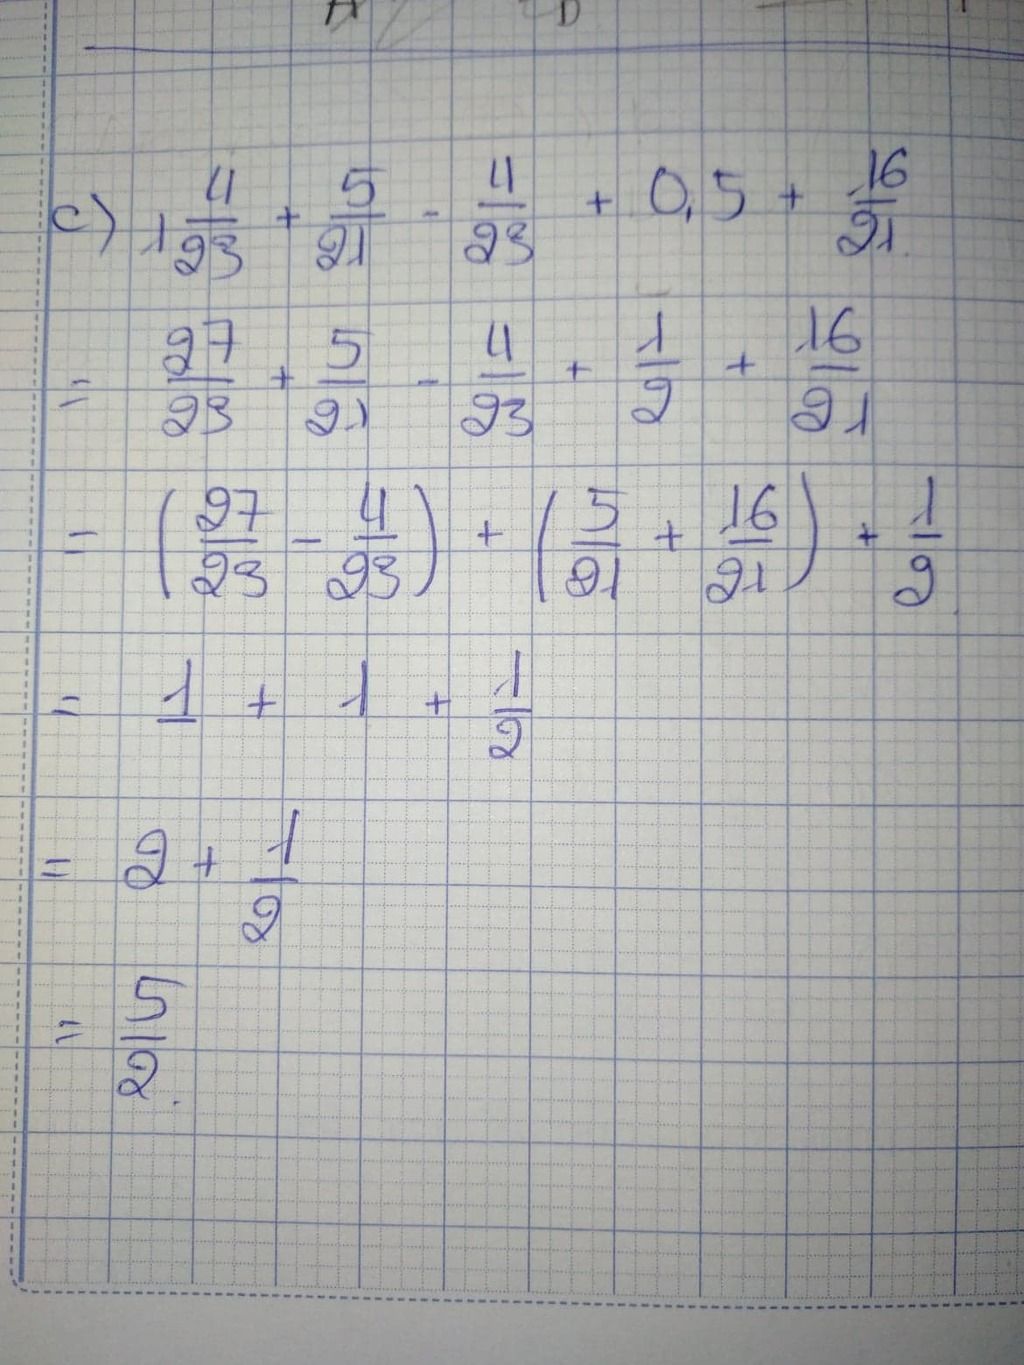 c) 1 4/23 + 5/21 - 4/23 + 0,5 + 16/21
= 27/23 + 5/21 - 4/23 + 1/2 + 16/21
= (27/23 - 4/23) + (5/21 + 16/21) + 1/2
= 1 + 1 + 1/2
= 2 + 1/2
= 5/2.